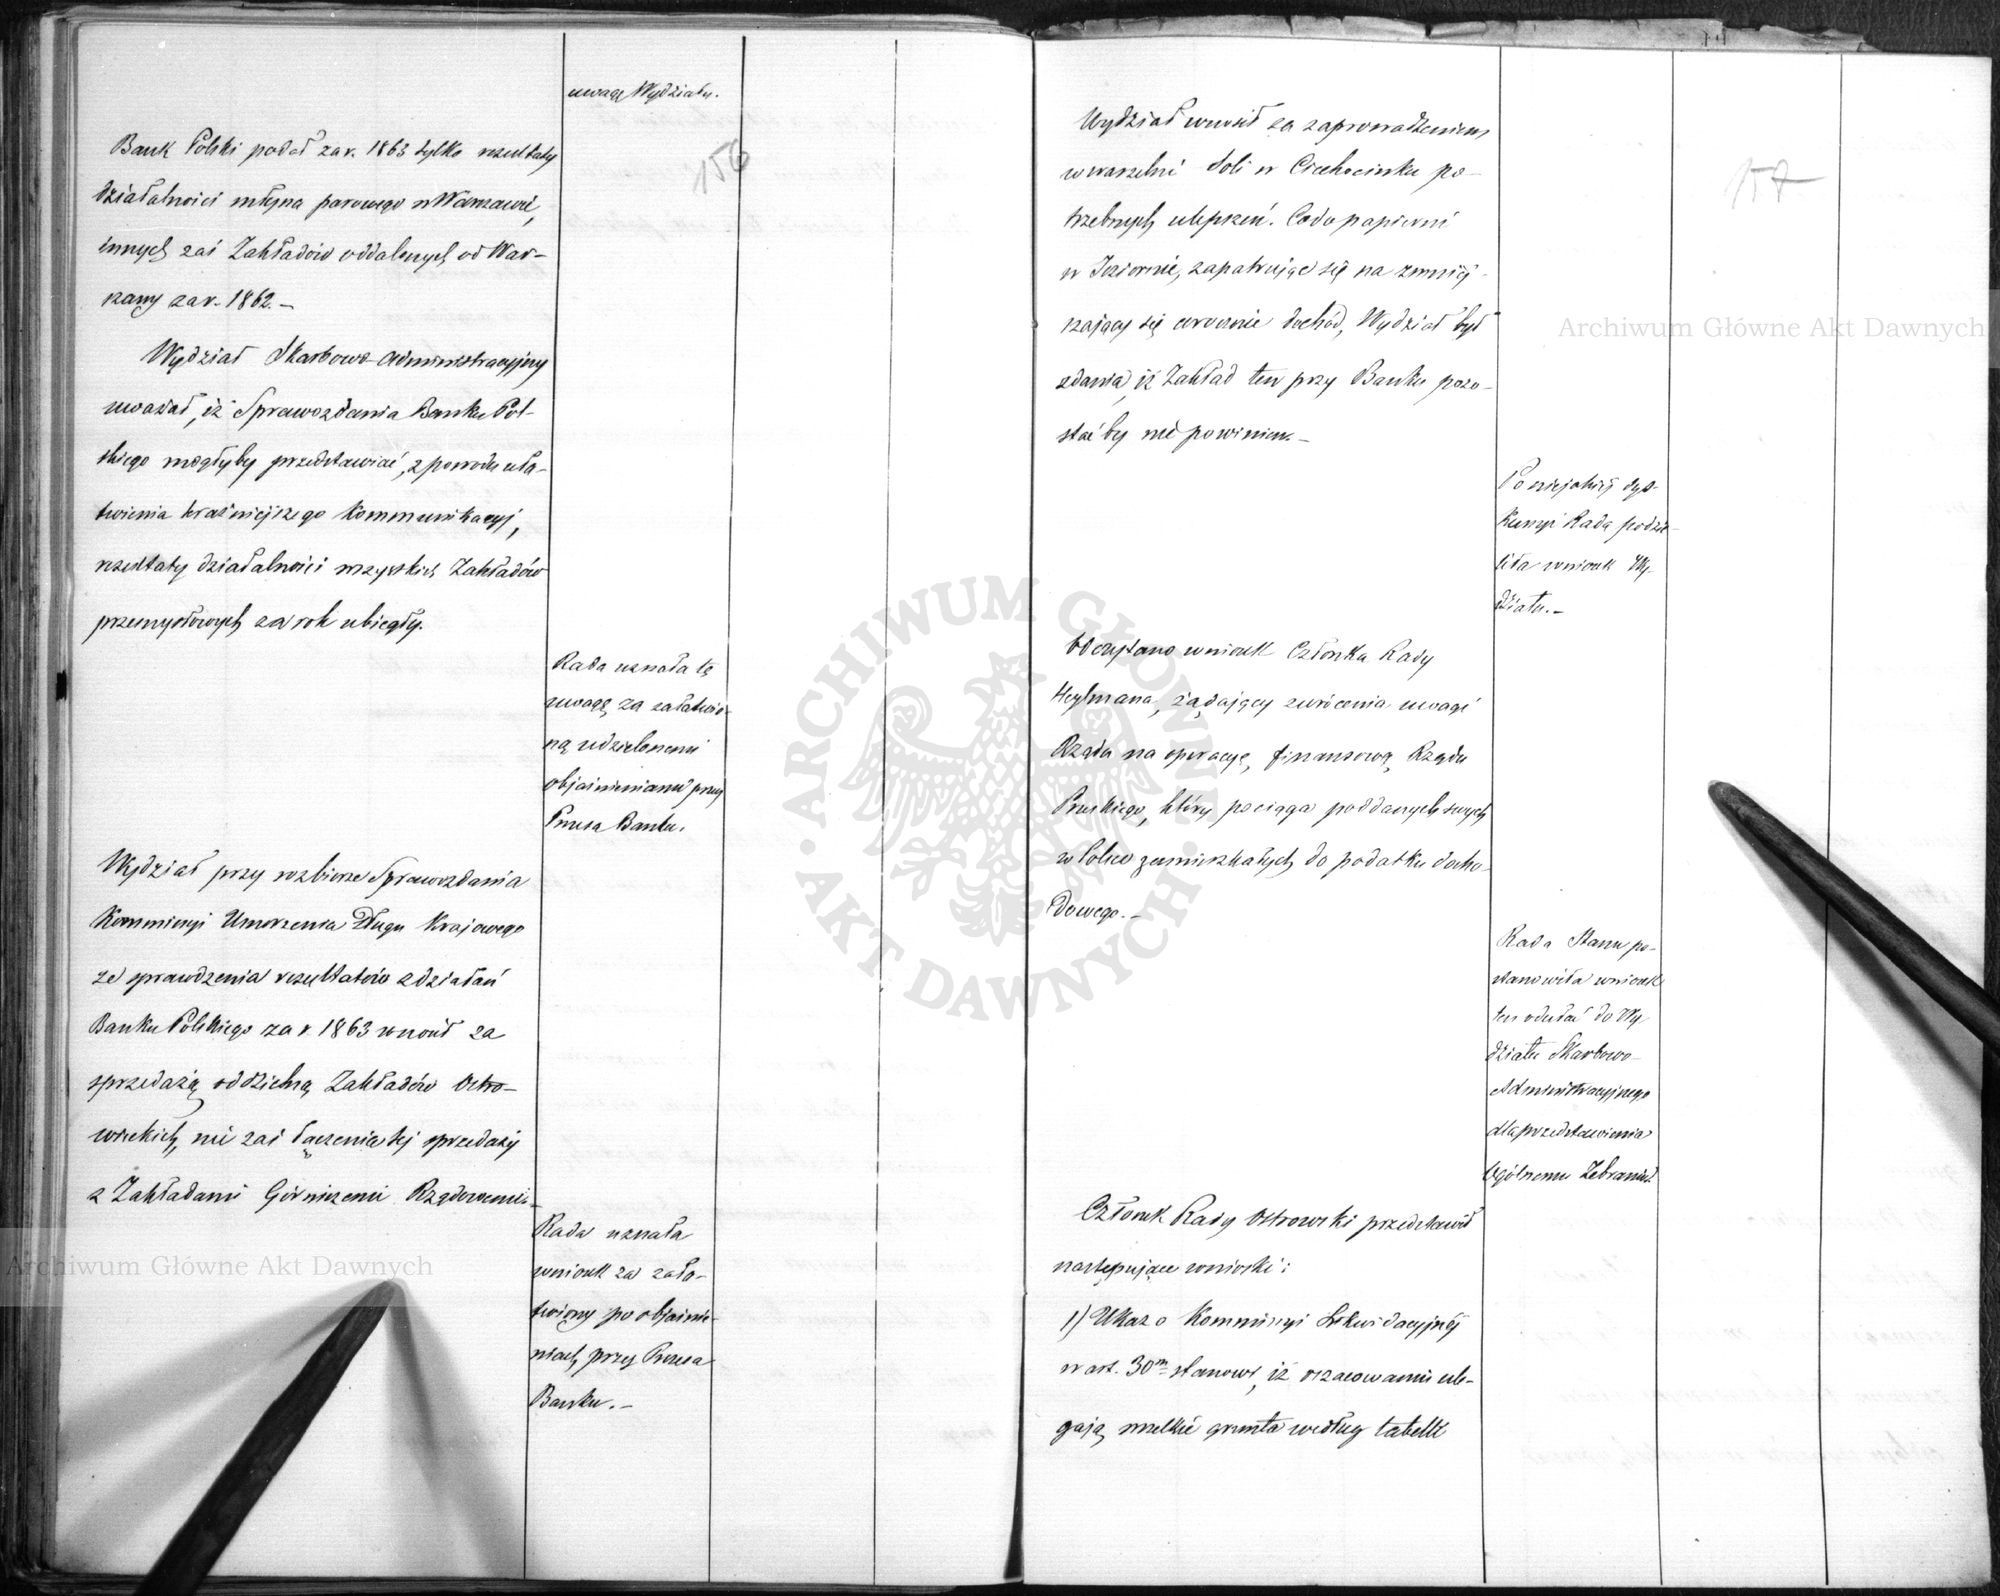 uwagę Wydziału.
156
Bank Polski podał za r. 1863 tylko rezultaty
działalności młyna parowego w Warszawie,
innych zaś Zakładów oddalonych od War-
szawy za r. 1862. –
Wydział Skarbowo-Administracyjny
uważał, iż Sprawozdania Banku Pol-
skiego mogłyby przedstawiać, z powodu uła-
twienia kraśniejszego Kommunikacyj,
rezultaty działalności wszystkich Zakładów
przemysłowych za rok ubiegły.
Rada uznała tę
uwagę za załatwio-
ną udzielonemi
objaśnieniami przez
Prezesa Banku.
Wydział przy rozbiorze Sprawozdania
Kommissyi Umorzenia Długu Krajowego
ze sprawdzenia rezultatów z działań
Banku Polskiego za r. 1863 wnosił za
sprzedażą oddzielną Zakładów Ostro-
wieckich, nie zaś łączenia tej sprzedaży
z Zakładami Górniczemi Rządowemi. –
Rada uznała
wniosek za zała-
twiony po objaśnie-
niach przez Prezesa
Banku. –
157
Wydział wnosił za zaprowadzeniem
w warzelni Soli w Ciechocinku po-
trzebnych ulepszeń. Co do papierni
w Jeziornie, zapatrując się na zmniej-
szający się corocznie dochód, Wydział był
zdania, iż Zakład ten przy Banku pozo-
stać by nie powinien. –
Po niejakiej dys-
kussyi Rada podzie-
liła wniosek Wy-
działu. –
Odczytano wniosek Członka Rady
Heylmana, żądający zwrócenia uwagi
Rządu na operacyę finansową Rządu
Pruskiego, który pociąga poddanych swych
w Polsce zamieszkałych do podatku docho-
dowego. –
Rada Stanu po-
stanowiła wniosek
ten odesłać do Wy-
działu Skarbowo-
Administracyjnego
dla przedstawienia
Ogólnemu Zebraniu.
Członek Rady Ostrowski przedstawił
następujące wnioski:
1) Ukaz o Kommissyi Likwidacyjnej
w art. 30m stanowi, iż oszacowaniu ule-
gają wszelkie grunta według tabelli
Archiwum Główne Akt Dawnych
Archiwum Główne Akt Dawnych
ARCHIWUM GŁÓWNE AKT DAWNYCH